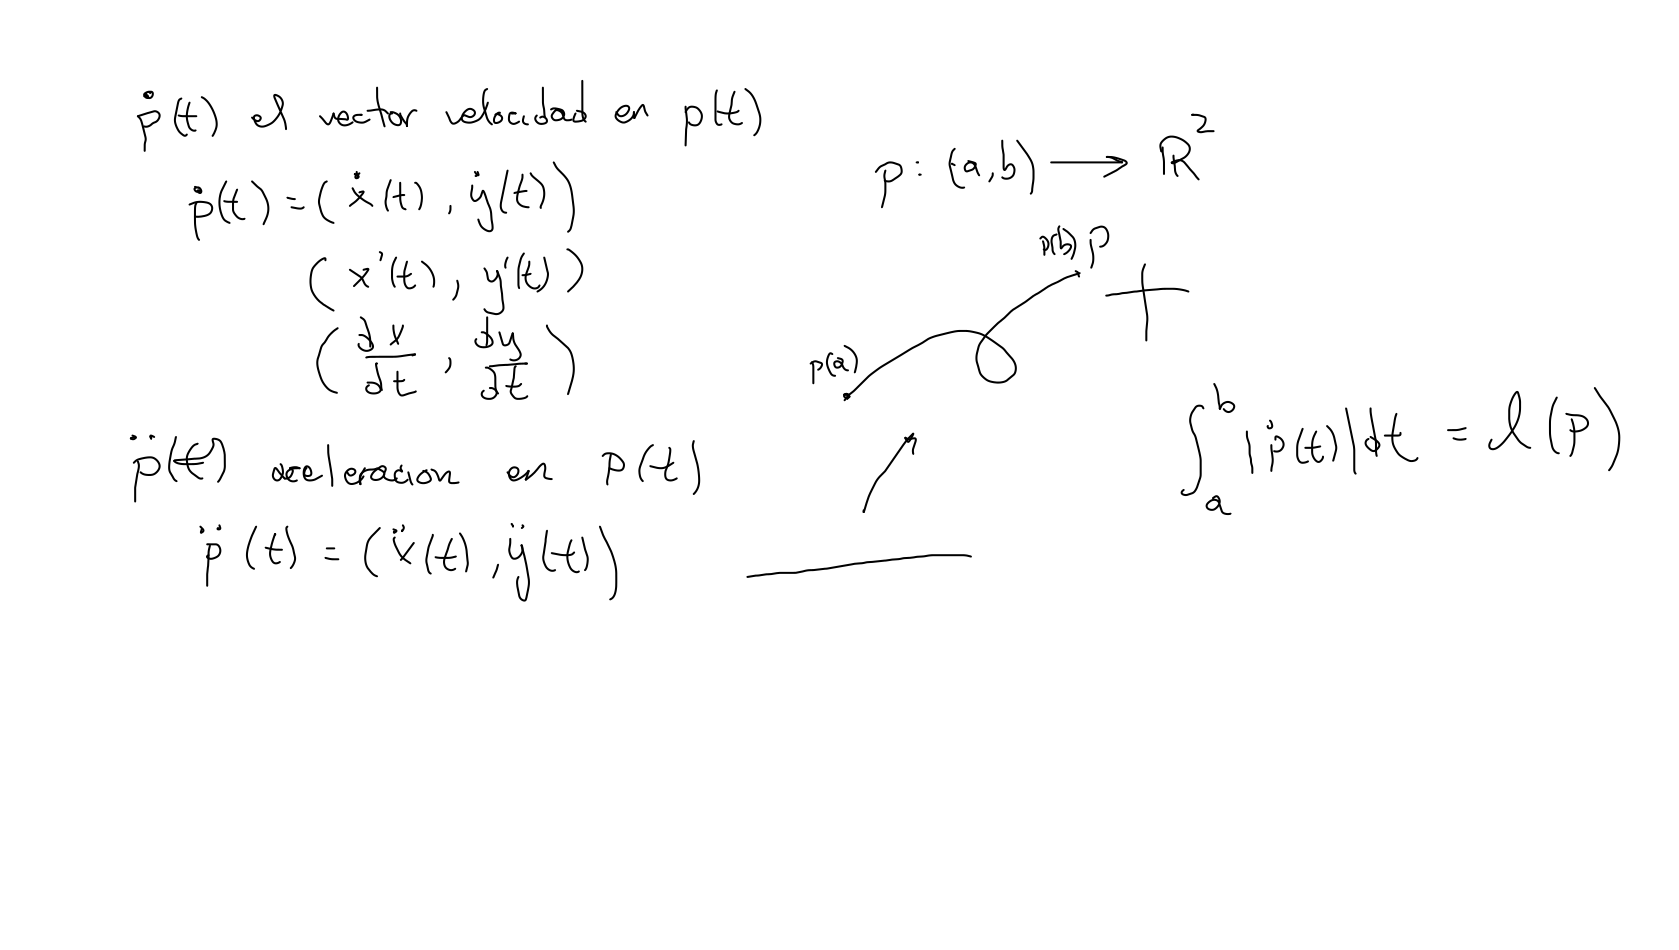 ṗ(t) el vector velocidad en p(t)
ṗ(t) = (ẋ(t), ẏ(t))
(x'(t), y'(t))
(dx/dt, dy/dt)
p̈(t) aceleracion en p(t)
p̈(t) = (ẍ(t), ÿ(t))
p: (a,b) ⟶ ℝ²
p(b) p
p(a)
∫ₐᵇ |ṗ(t)| dt = l(p)